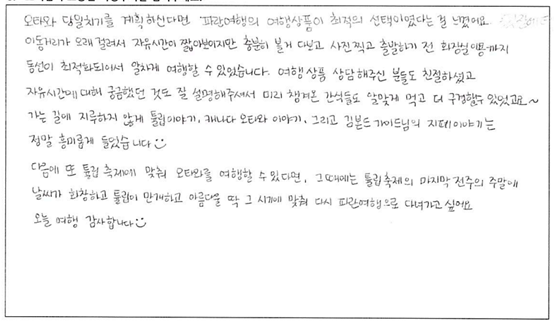 오타와 당일치기를 계획하신다면 파란여행의 여행상품이 최적의 선택이었다는 걸 느꼈어요
이동거리가 오래 걸려서 자유시간이 짧아보이지만 충분히 볼거 다보고 사진찍고 출발하기 전 화장실이용까지
동선이 최적화되어서 알차게 여행할 수 있었습니다. 여행상품 상담해주신 분들도 친절하셨고
자유시간에 대해 궁금했던 것도 잘 설명해주셔서 미리 챙겨온 간식들도 알맞게 먹고 더 구경할수 있었고요~
가는 길에 지루하지 않게 튤립이야기, 캐나다 오타와 이야기, 그리고 가이드님의 이야기는
정말 흥미롭게 들었습니다
다음에 또 튤립 축제에 맞춰 오타와를 여행할 수 있다면, 그때에는 튤립축제의 마지막 전주의 주말에
날씨가 화창하고 튤립이 만개하고 아름다울 딱 그 시기에 맞춰 다시 파란여행으로 다녀가고 싶어요
오늘 여행 감사합니다